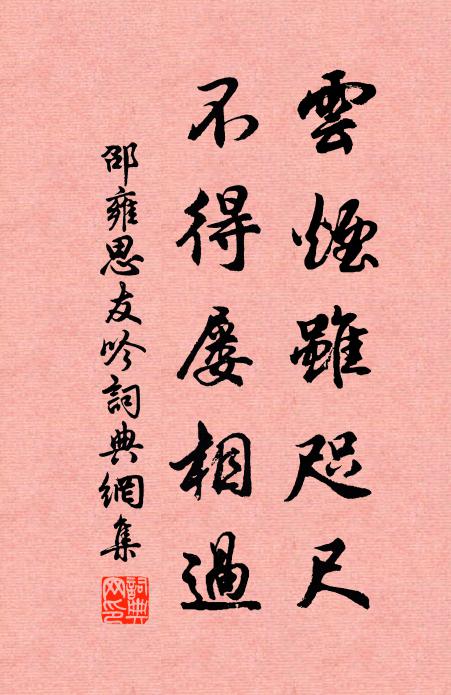 雲煙雖咫尺
不得屡相過
邵雍思友吟詞典網集
詞典
網印